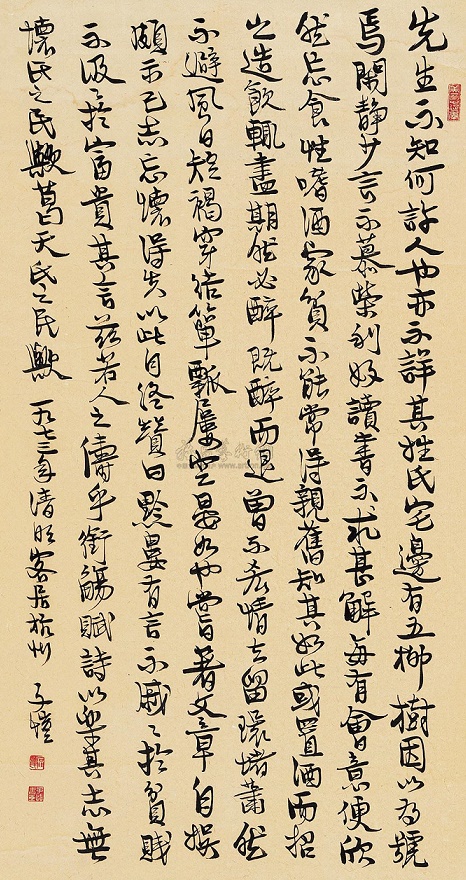 先生不知何許人也亦不詳其姓氏宅邊有五柳樹因以為號
焉閑靜少言不慕榮利好讀書不求甚解每有會意便欣
然忘食性嗜酒家貧不能常得親舊知其如此或置酒而招
之造飲輒盡期在必醉既醉而退曾不吝情去留環堵蕭然
不避風日短褐穿結簞瓢屢空晏如也嘗著文章自娛
頗示己志忘懷得失以此自終贊曰黔婁有言不戚〻於貧賤
不汲〻於富貴其言茲若人之儔乎銜觴賦詩以樂其志無
懷氏之民歟葛天氏之民歟 一九七三年清明客居杭州 子愷